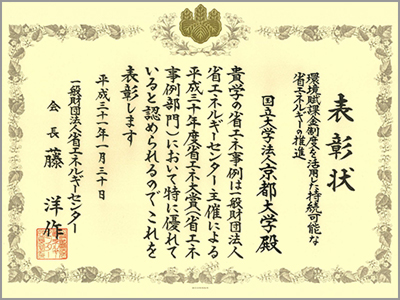 表彰状
環境賦課金制度を活用した持続可能な
省エネルギーの推進
国立大学法人京都大学殿
貴学の省エネ事例は一般財団法人
省エネルギーセンター主催による
平成三十年度省エネ大賞（省エネ
事例部門）において特に優れて
いると認められるのでこれを
表彰します
平成三十一年一月三十日
一般財団法人省エネルギーセンター
会長 藤 洋作